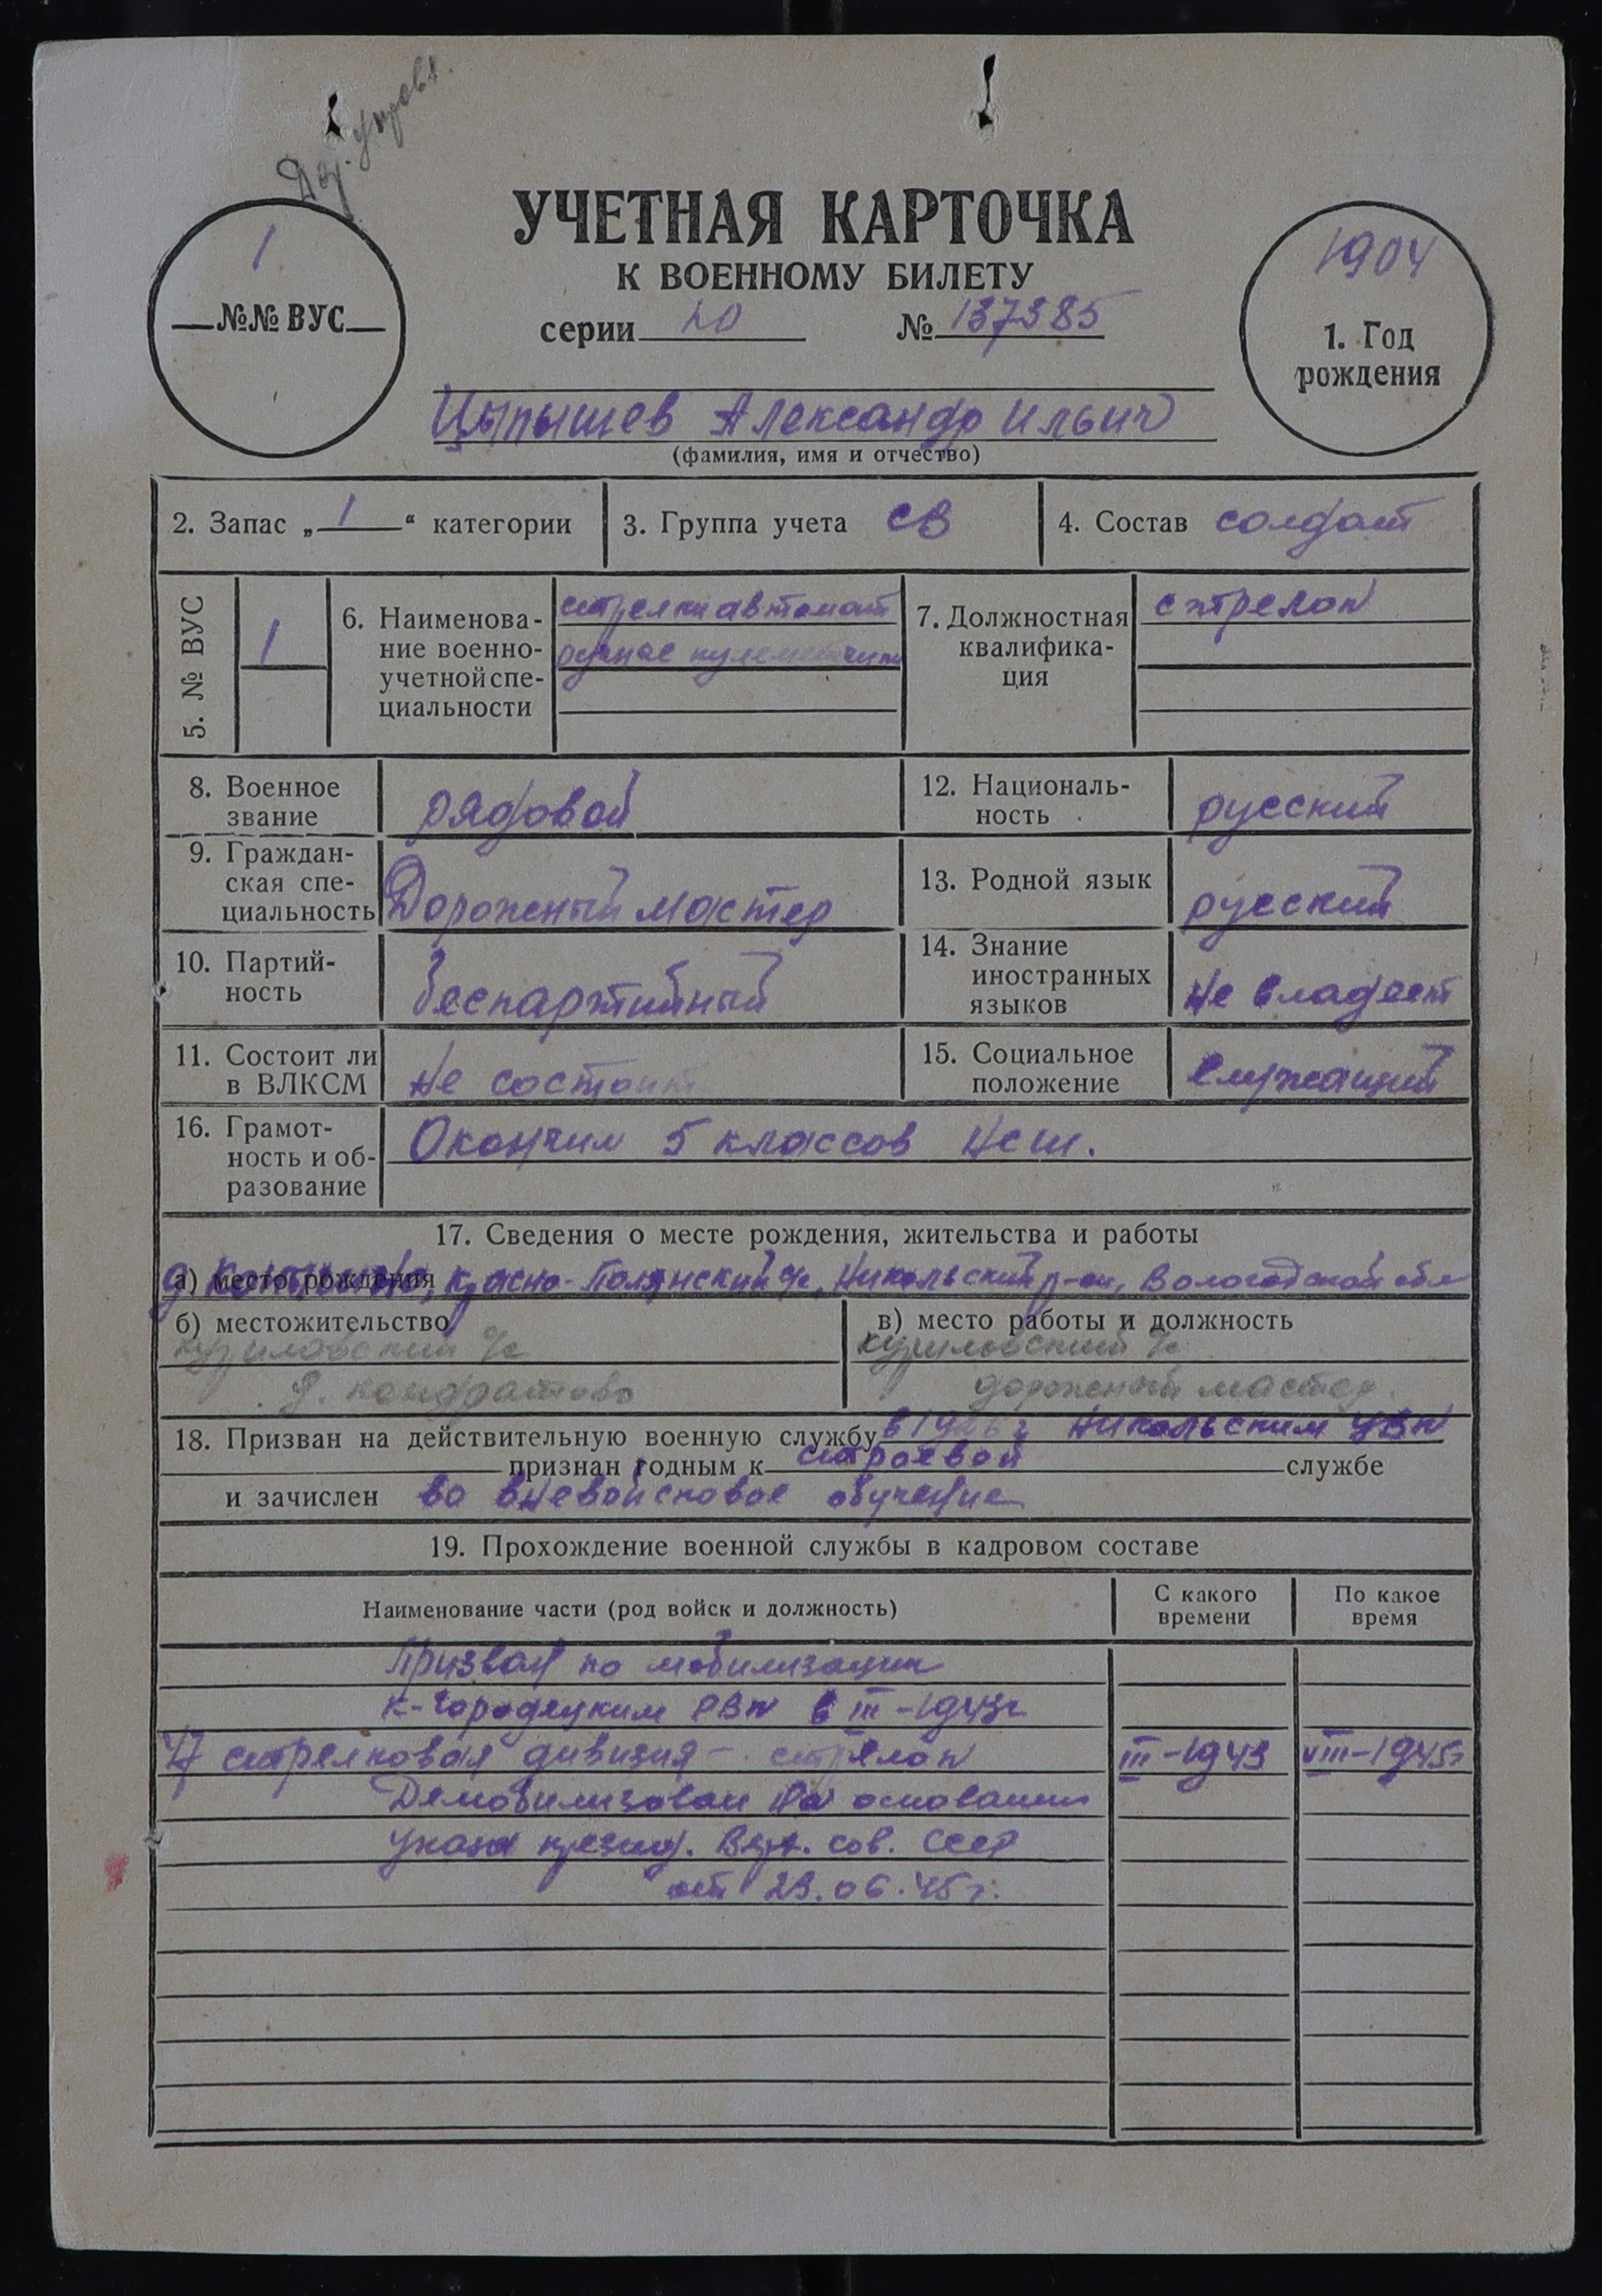 1
№№ ВУС
УЧЕТНАЯ КАРТОЧКА
К ВОЕННОМУ БИЛЕТУ
серии № 137385
1904
1. Год
рождения
Цыпышев Александр Ильич
(фамилия, имя и отчество)
2. Запас „ 1 “ категории
3. Группа учета СВ
4. Состав солдат
5. № ВУС
1
6. Наименова-
ние военно-
учетной спе-
циальности
стрелки автомат
ручные пулеметчики
7. Должностная
квалифика-
ция
стрелок
8. Военное
звание
рядовой
12. Националь-
ность
русский
9. Граждан-
ская спе-
циальность
Дорожный мастер
13. Родной язык
русский
10. Партий-
ность
беспартийный
14. Знание
иностранных
языков
не владеет
11. Состоит ли
в ВЛКСМ
не состоит
15. Социальное
положение
служащий
16. Грамот-
ность и об-
разование
Окончил 5 классов нсш.
17. Сведения о месте рождения, жительства и работы
а) место рождения
д. Красно-Полянский с/с, Никольский р-он, Вологодской обл
б) местожительство
Куриловский с/с
д. Кондратово
в) место работы и должность
Куриловский с/с
дорожный мастер.
18. Призван на действительную военную службу в г Никольским УВК
признан годным к строевой службе
и зачислен во вневойсковое обучение
19. Прохождение военной службы в кадровом составе
Наименование части (род войск и должность)
С какого
времени
По какое
время
Призван по мобилизации
К-Городецким РВК в III-1943г
стрелковая дивизия - стрелок III-1943 VIII-1945г
Демобилизован на основании
указа презид. Верх. сов. СССР
от 23.06.45г.